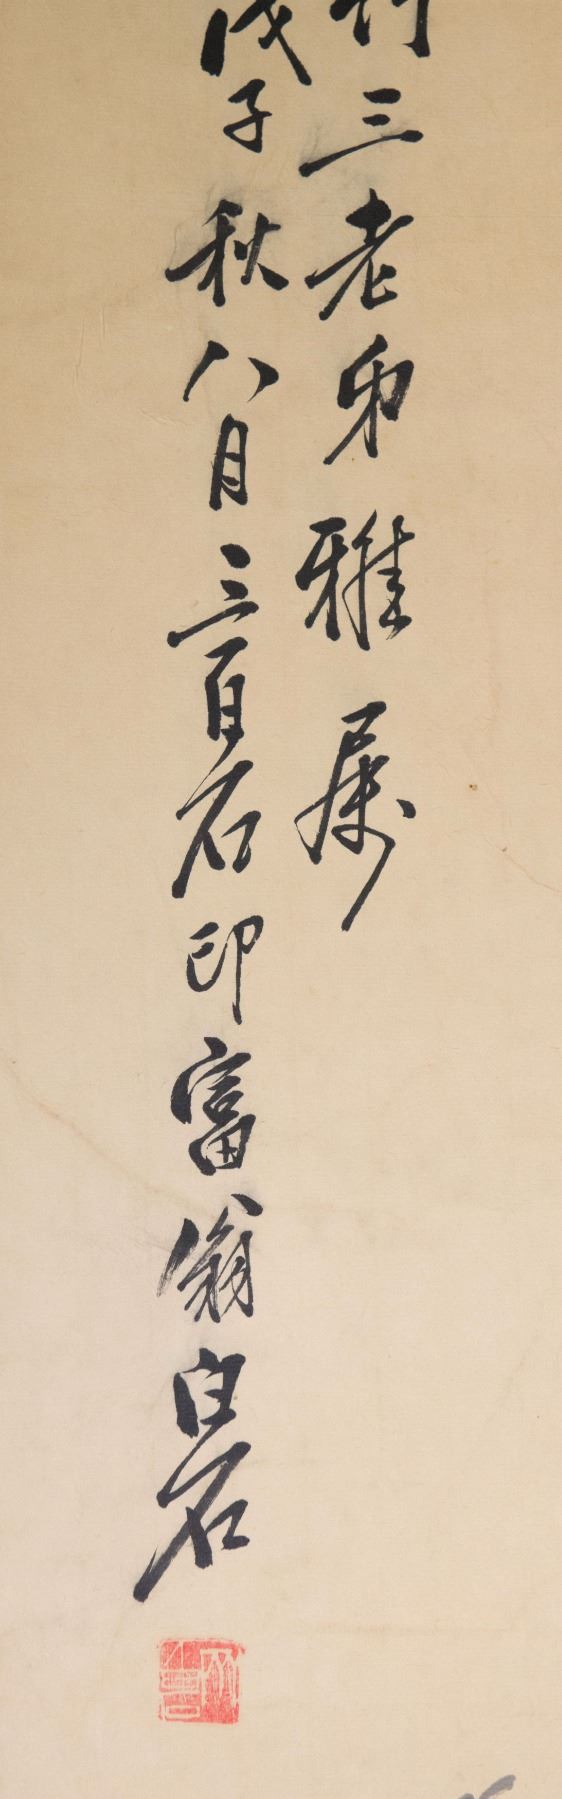 三老弟雅属
戊子秋八月三百石印富翁白石